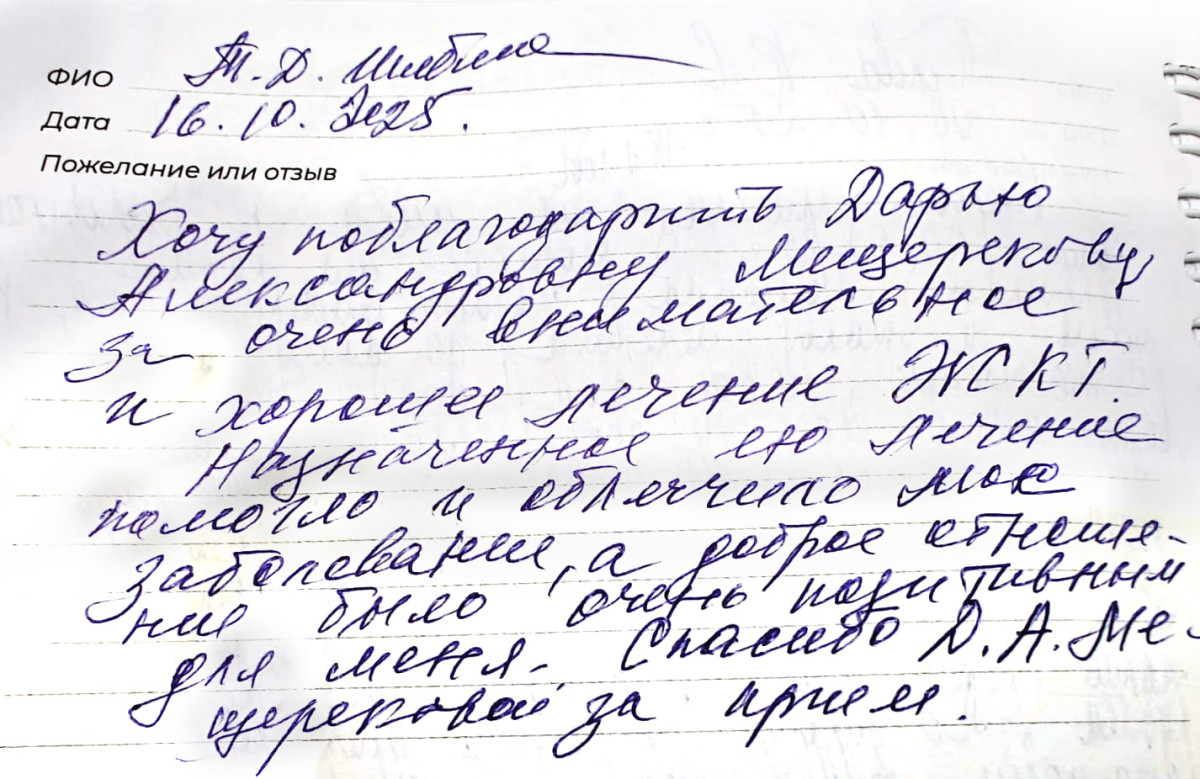 ФИО Т. Д.
Дата 16.10.2025.
Пожелание или отзыв
Хочу поблагодарить Дарью
Александровну Мещерякову,
за очень внимательное
и хорошее лечение ЖКТ.
Назначенное ею лечение
помогло и облегчило мое
заболевание, а доброе отноше-
ние было очень позитивным
для меня. Спасибо Д. А. Ме-
щеряковой за прием.